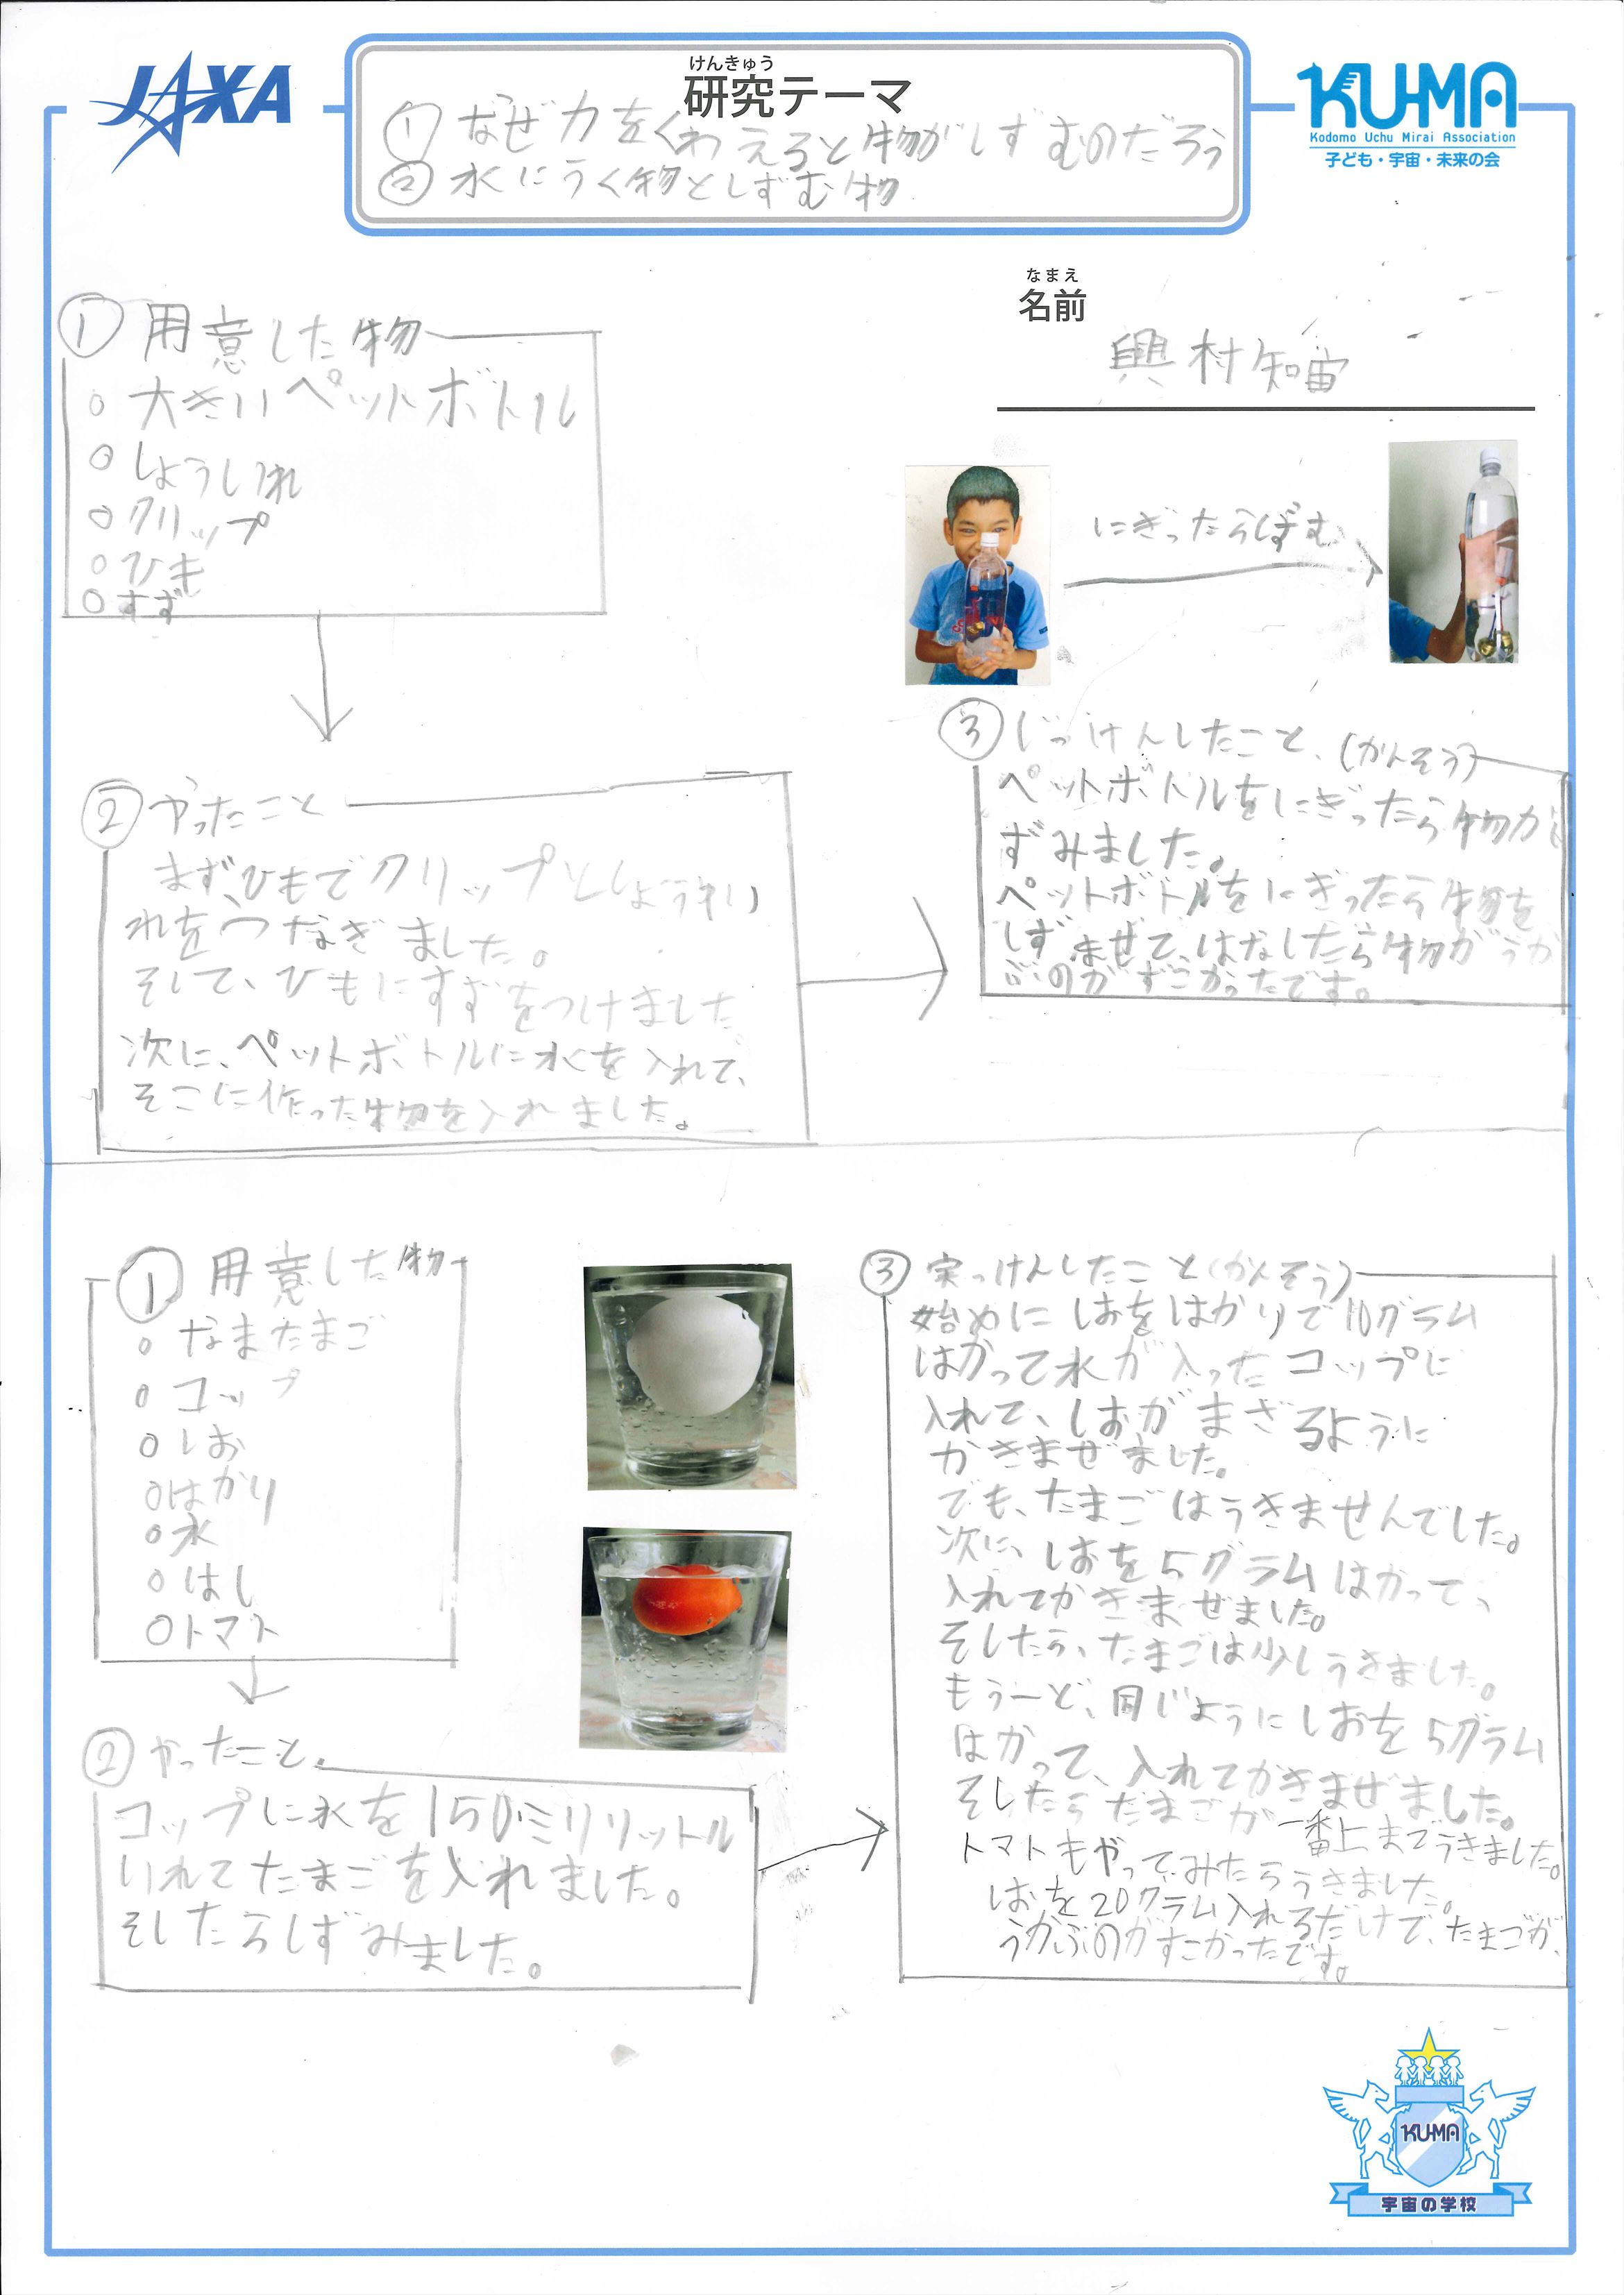 JAXA
けんきゅう
研究テーマ
KU-MA
Kodomo Uchu Mirai Association
子ども・宇宙・未来の会
① なぜ力をくわえると物がしずむのだろう
② 水にうく物としずむ物
なまえ
名前
興村知宙
① 用意した物
○ 大きいペットボトル
○ しょういれ
○ クリップ
○ ひも
○ すず
にぎったらしずむ
② やったこと
まず、ひもでクリップとしょうゆい
れをつなぎました。
そして、ひもにすずをつけました
次に、ペットボトルに水を入れて、
そこに作った物を入れました。
③ じっけんしたこと、(かんそう)
ペットボトルをにぎったら物がし
ずみました。
ペットボトルをにぎったら物を
しずませて、はなしたら物がうか
ぶのがすごかったです。
① 用意した物
○ なまたまご
○ コップ
○ しお
○ はかり
○ 水
○ はし
○ トマト
② やったこと。
コップに水を150ミリリットル
いれてたまごを入れました。
そしたらしずみました。
③ 実っけんしたこと(かんそう)
始めにしおをはかりで10グラム
はかって水が入ったコップに
入れて、しおがまざるように
かきまぜました。
でも、たまごはうきませんでした。
次に、しおを5グラムはかって、
入れてかきまぜました。
そしたら、たまごは少しうきました。
もう一ど、同じようにしおを5グラム
はかって、入れてかきまぜました。
そしたらたまごが一番上までうきました。
トマトもやってみたらうきました。
しおを20グラム入れるだけで、たまごが、
うかぶのがすごかったです。
KU-MA
宇宙の学校